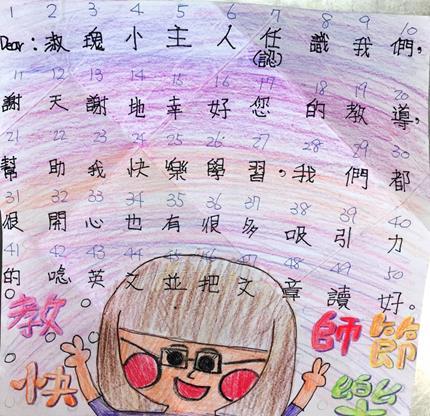 1 2 3 4 5 6 7 8 9 10
Dear：淑瑰小主人任識我們，
(認)
11 12 13 14 15 16 17 18 19 20
謝天謝地幸好您的教導，
21 22 23 24 25 26 27 28 29 30
幫助我快樂學習，我們都
31 32 33 34 35 36 37 38 39 40
很開心也有很多吸引力
41 42 43 44 45 46 47 48 49 50
的唸英文並把文章讀好。
教師節
快樂